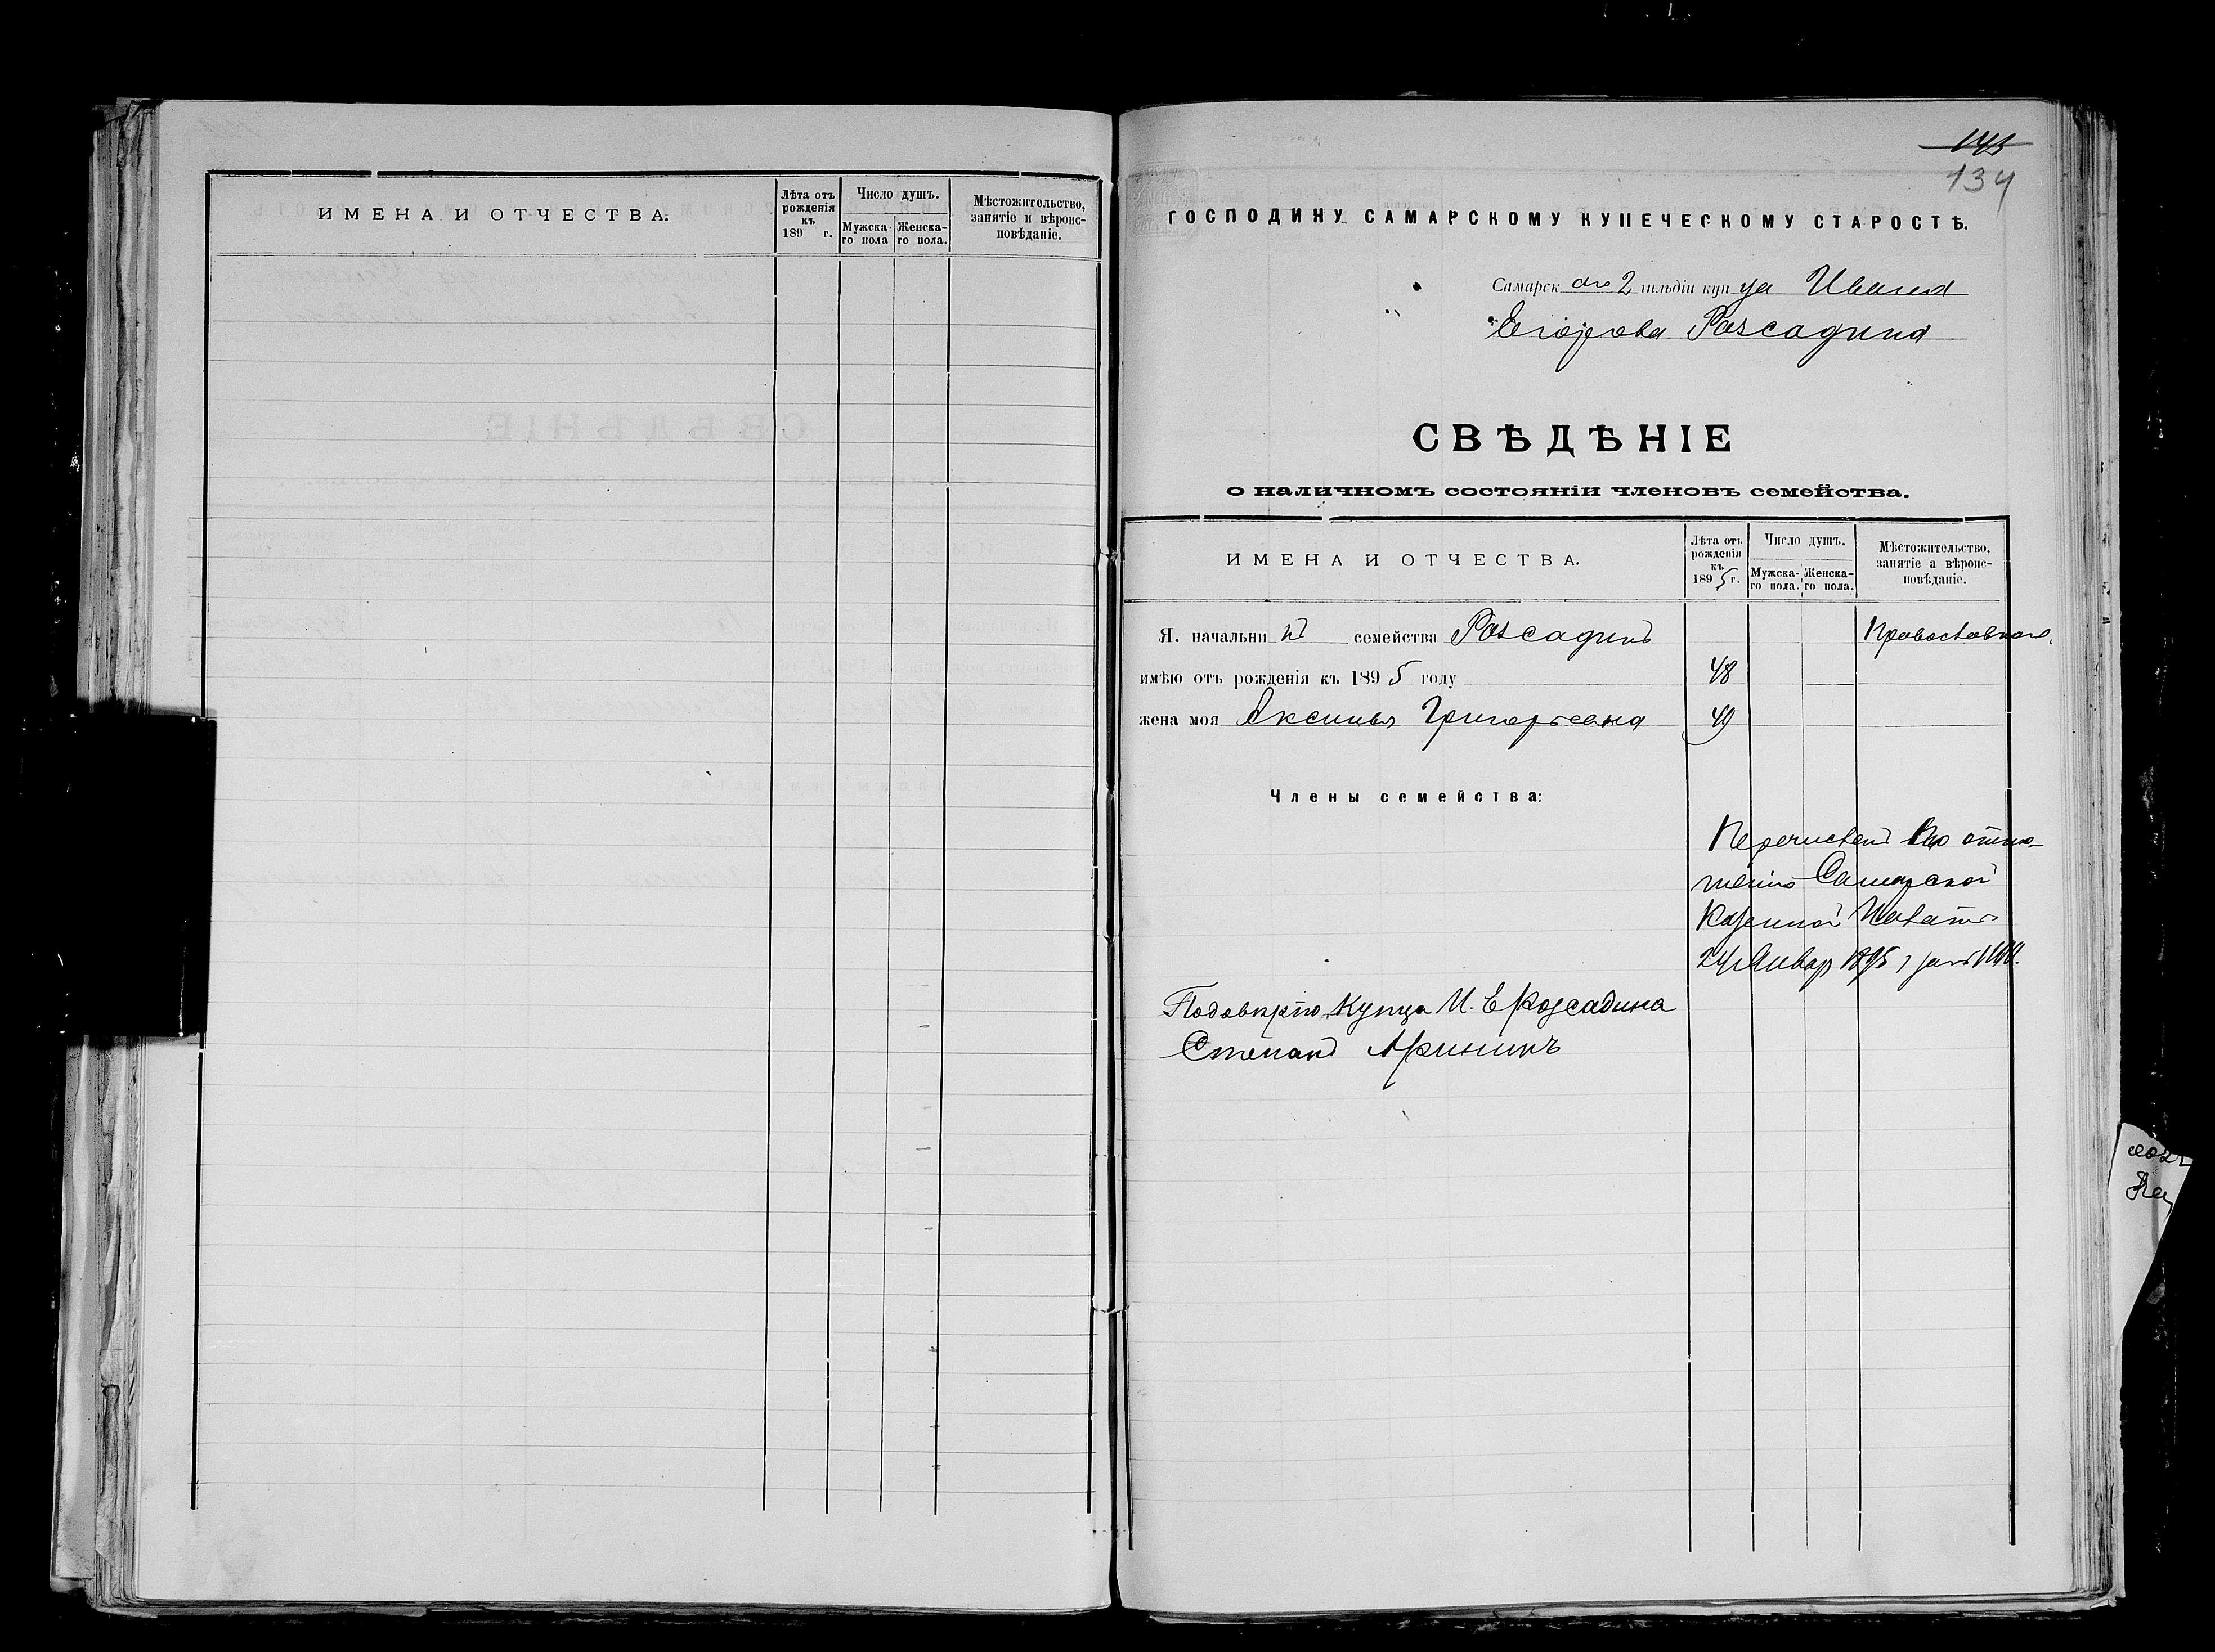 ИМЕНА И ОТЧЕСТВА.
Лѣта отъ рожденія къ 189 г.
Число душъ.
Мужска-го пола
Женска-го пола.
Мѣстожительство, занятіе и вѣроис-повѣданіе.
143
134
ГОСПОДИНУ САМАРСКОМУ КУПЕЧЕСКОМУ СТАРОСТѢ.
Самарскаго 2 гильдіи купца Ивана
Егорова Разсадина
СВѢДѢНІЕ
о наличномъ состояніи членовъ семейства.
ИМЕНА И ОТЧЕСТВА.
Лѣта отъ рожденія къ 1895 г.
Число душъ.
Мужска-го пола.
Женска-го пола.
Мѣстожительство, занятіе а вѣроис-повѣданіе.
Я. начальникъ семейства Разсадинъ Православнаго
имѣю отъ рожденія къ 1895 году 48
жена моя Аксинья Григорьевна 49
Члены семейства:
Перечисленъ по отно-
шенію Самарской
Казенной Палаты
24 Январ 1895 г за №
По довѣрію Купца И. Е Розсадина
Степанъ Аринин